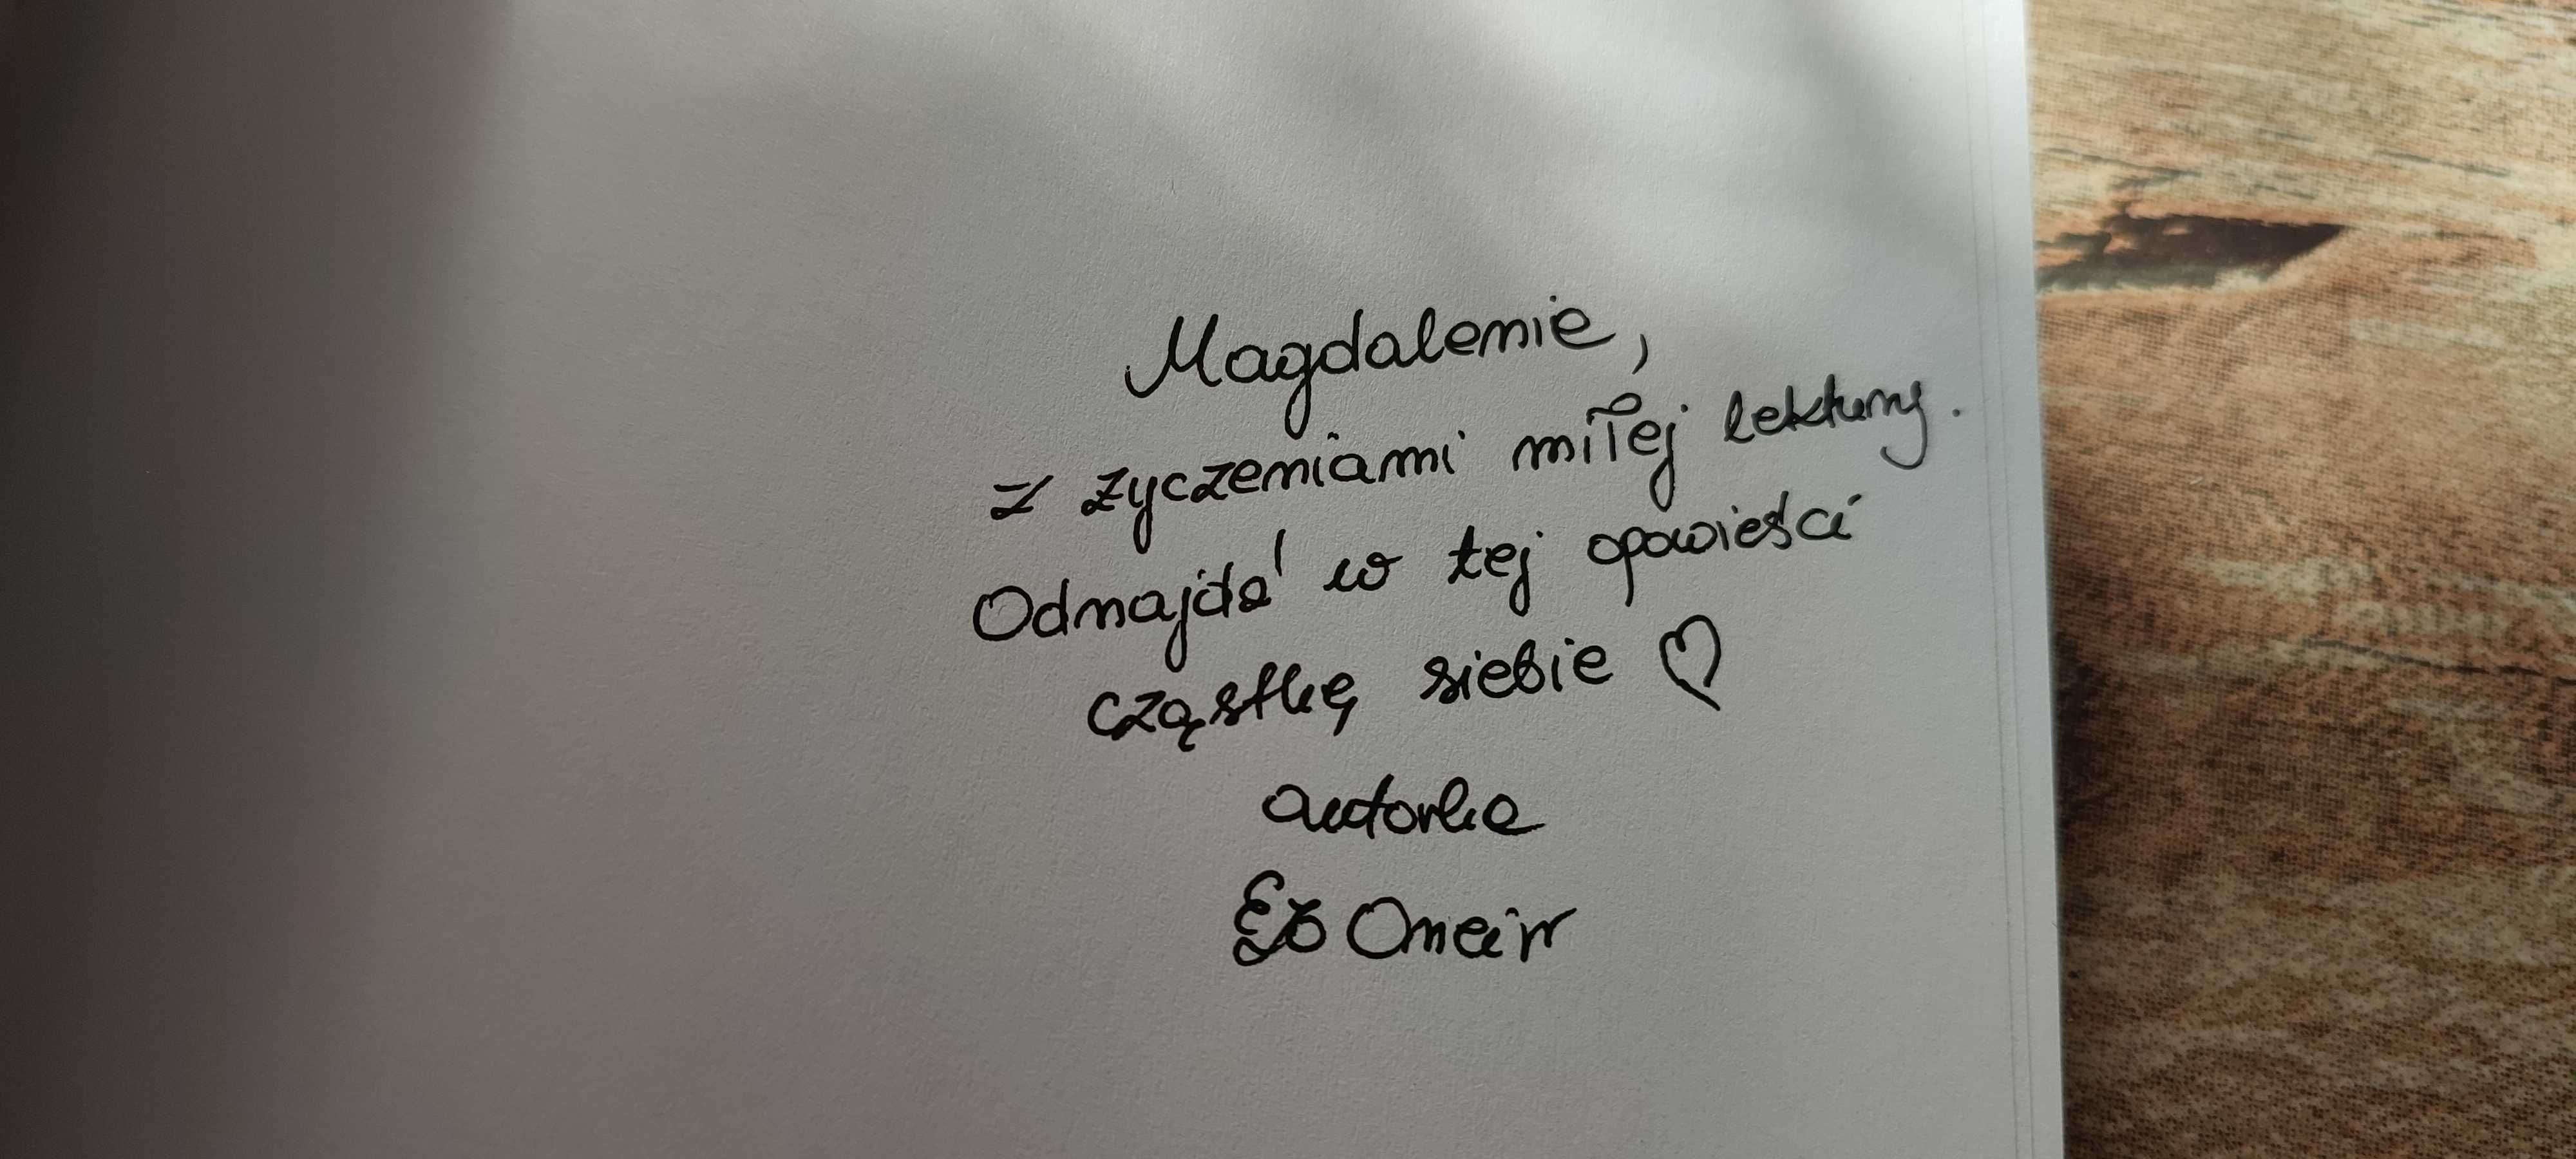 Magdalenie,
z życzeniami miłej lektury.
Odnajdź w tej opowieści
cząstkę siebie ♡
autorka